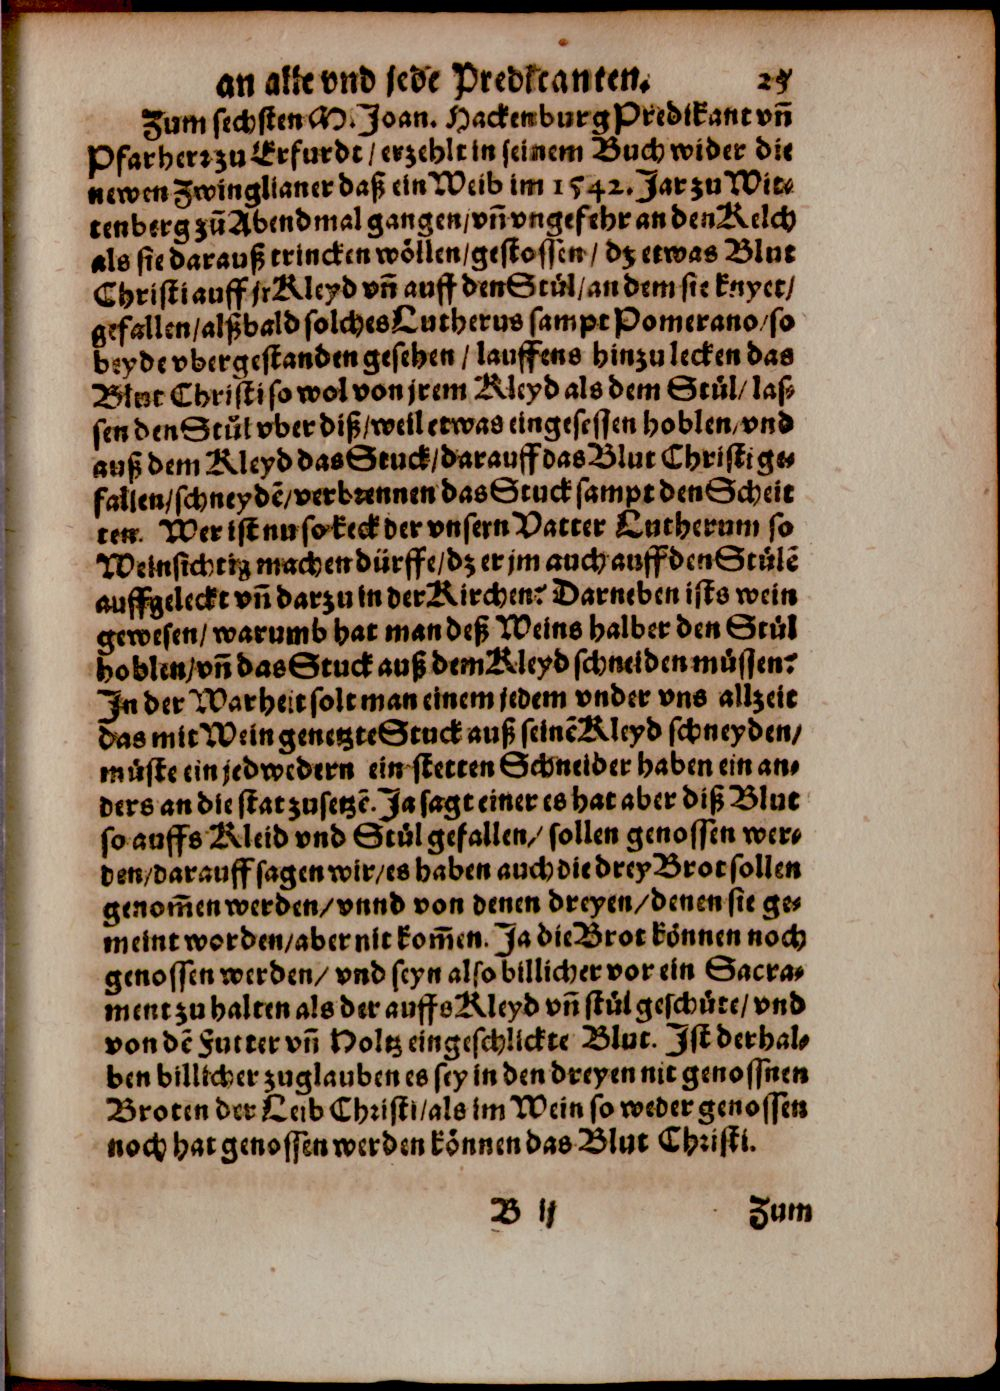 an alle vnd jede Predicanten. 25
Zum sechsten M. Joan. Hackenburg Predikant vñ
Pfarherr zu Erfurdt / erzehlt in seinem Buch wider die
newen Zwinglianer daß ein Weib im 1542. Jar zu Wit-
tenberg zũ Abendmal gangen / vñ vngefehr an den Kelch
als sie darauß trincken wöllen / gestossen / dz etwas Blut
Christi auff jr Kleyd vñ auff den Stůl / an dem sie knyet /
gefallen / alßbald solches Lutherus sampt Pomerano / so
beyde vbergestanden gesehen / lauffens hinzu lecken das
Blut Christi so wol von jrem Kleyd als dem Stůl / las-
sen den Stůl vber diß / weil etwas eingesessen hoblen / vnd
auß dem Kleyd das Stuck / darauff das Blut Christi ge-
fallen / schneydẽ / verbrennen das Stuck sampt den Scheit
ten. Wer ist nu so keck der vnsern Vatter Lutherum so
Weinsichtig machen dürffe / dz er jm auch auff den Stůlẽ
auffgeleckt vñ darzu in der Kirchen? Darneben ists wein
gewesen / warumb hat man deß Weins halber den Stůl
hoblen / vñ das Stuck auß dem Kleyd schneiden müssen?
In der Warheit solt man einem jedem vnder vns allzeit
das mit Wein genetzte Stuck auß seinẽ Kleyd schneyden /
müste ein jedwedern ein stetten Schneider haben ein an-
ders an die stat zusetzẽ. Ja sagt einer es hat aber diß Blut
so auffs Kleid vnd Stůl gefallen / sollen genossen wer-
den / darauff sagen wir / es haben auch die drey Brot sollen
genom̃en werden / vnnd von denen dreyen / denen sie ge-
meint worden / aber nit kom̃en. Ja die Brot können noch
genossen werden / vnd seyn also billicher vor ein Sacra-
ment zu halten als der auffs Kleyd vñ stůl geschüte / vnd
von dẽ Futter vñ Holtz eingeschlickte Blut. Ist derhal-
ben billicher zuglauben es sey in den dreyen nit genossnen
Broten der Leib Christi / als im Wein so weder genossen
noch hat genossen werden können das Blut Christi.
B ij Zum